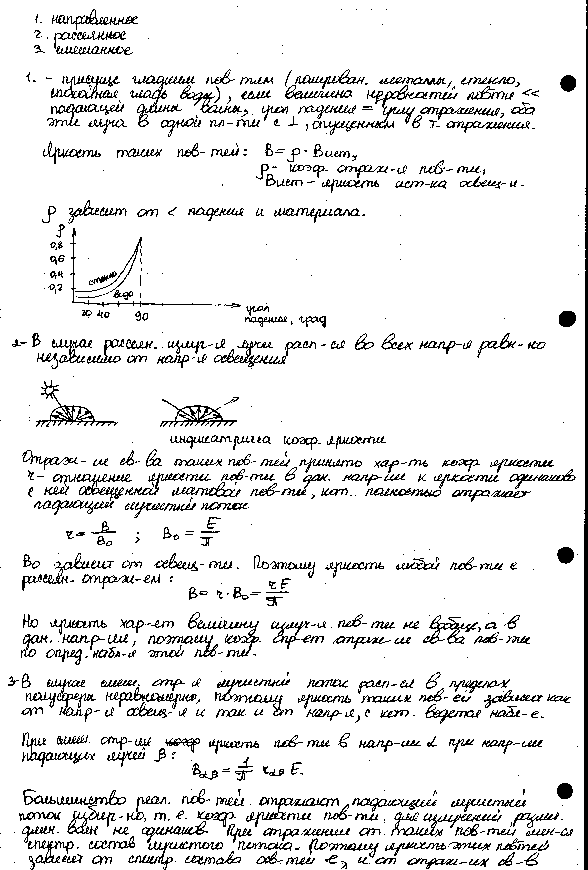 1. направленное
2. рассеянное
3. смешанное
1. - присуще гладким пов-тям (полирован. металлы, стекло,
спокойная гладь воды), если величина неровностей пов-ти <<
падающей длины волны, угол падения = углу отражения, оба
эти луча в одной пл-ти с ⊥, опущенным в т. отражения.
Яркость таких пов-тей: B = ρ · Bист,
ρ - коэф. отраж-я пов-ти,
Bист - яркость ист-ка освещ-я.
ρ зависит от < падения и материала.
ρ
0,8
0,6
0,4
0,2
стекло
вода
20 40 90
угол
падения, град
2- В случае рассеян. излуч-я лучи расп-ся во всех напр-я равн-но
независимо от напр-я освещения
индикатрисса коэф. яркости
Отраж-ие св-ва таких пов-тей принято хар-ть коэф яркости
r - отношение яркости пов-ти в дан. напр-ии к яркости одинаково
с ней освещенной матовой пов-ти, кот. полностью отражает
падающий лучистый поток
r = B/B₀ ; B₀ = E/π
B₀ зависит от освещ-ти. Поэтому яркость любой пов-ти с
рассеян. отраж-ем:
B = r · B₀ = rE/π
Но яркость хар-ет величину излуч-я пов-ти не вообще, а в
дан. напр-ии, поэтому коэф. опр-ет отраж-ие св-ва пов-ти
по опред. набл-я этой пов-ти.
3- В случае смеш. отр-я лучистый поток расп-ся в пределах
полусферы неравномерно, поэтому яркость таких пов-ей зависит как
от напр-я освещ-я и так и от напр-я, с кот. ведется набл-е.
При смеш. отр-ии коэф яркость пов-ти в напр-ии α при напр-ии
падающих лучей β:
Bαβ = 1/π rαβ E.
Большинство реал. пов-тей отражают падающий лучистый
поток избир-но, т.е. коэф. яркости пов-ти для излучений разли.
длин. волн не одинаков. При отражении от таких пов-тей мен-ся
спектр. состав лучистого потока. Поэтому яркость этих пов-тей
зависит от спектр. состава осв-тей и от отраж-их св-в